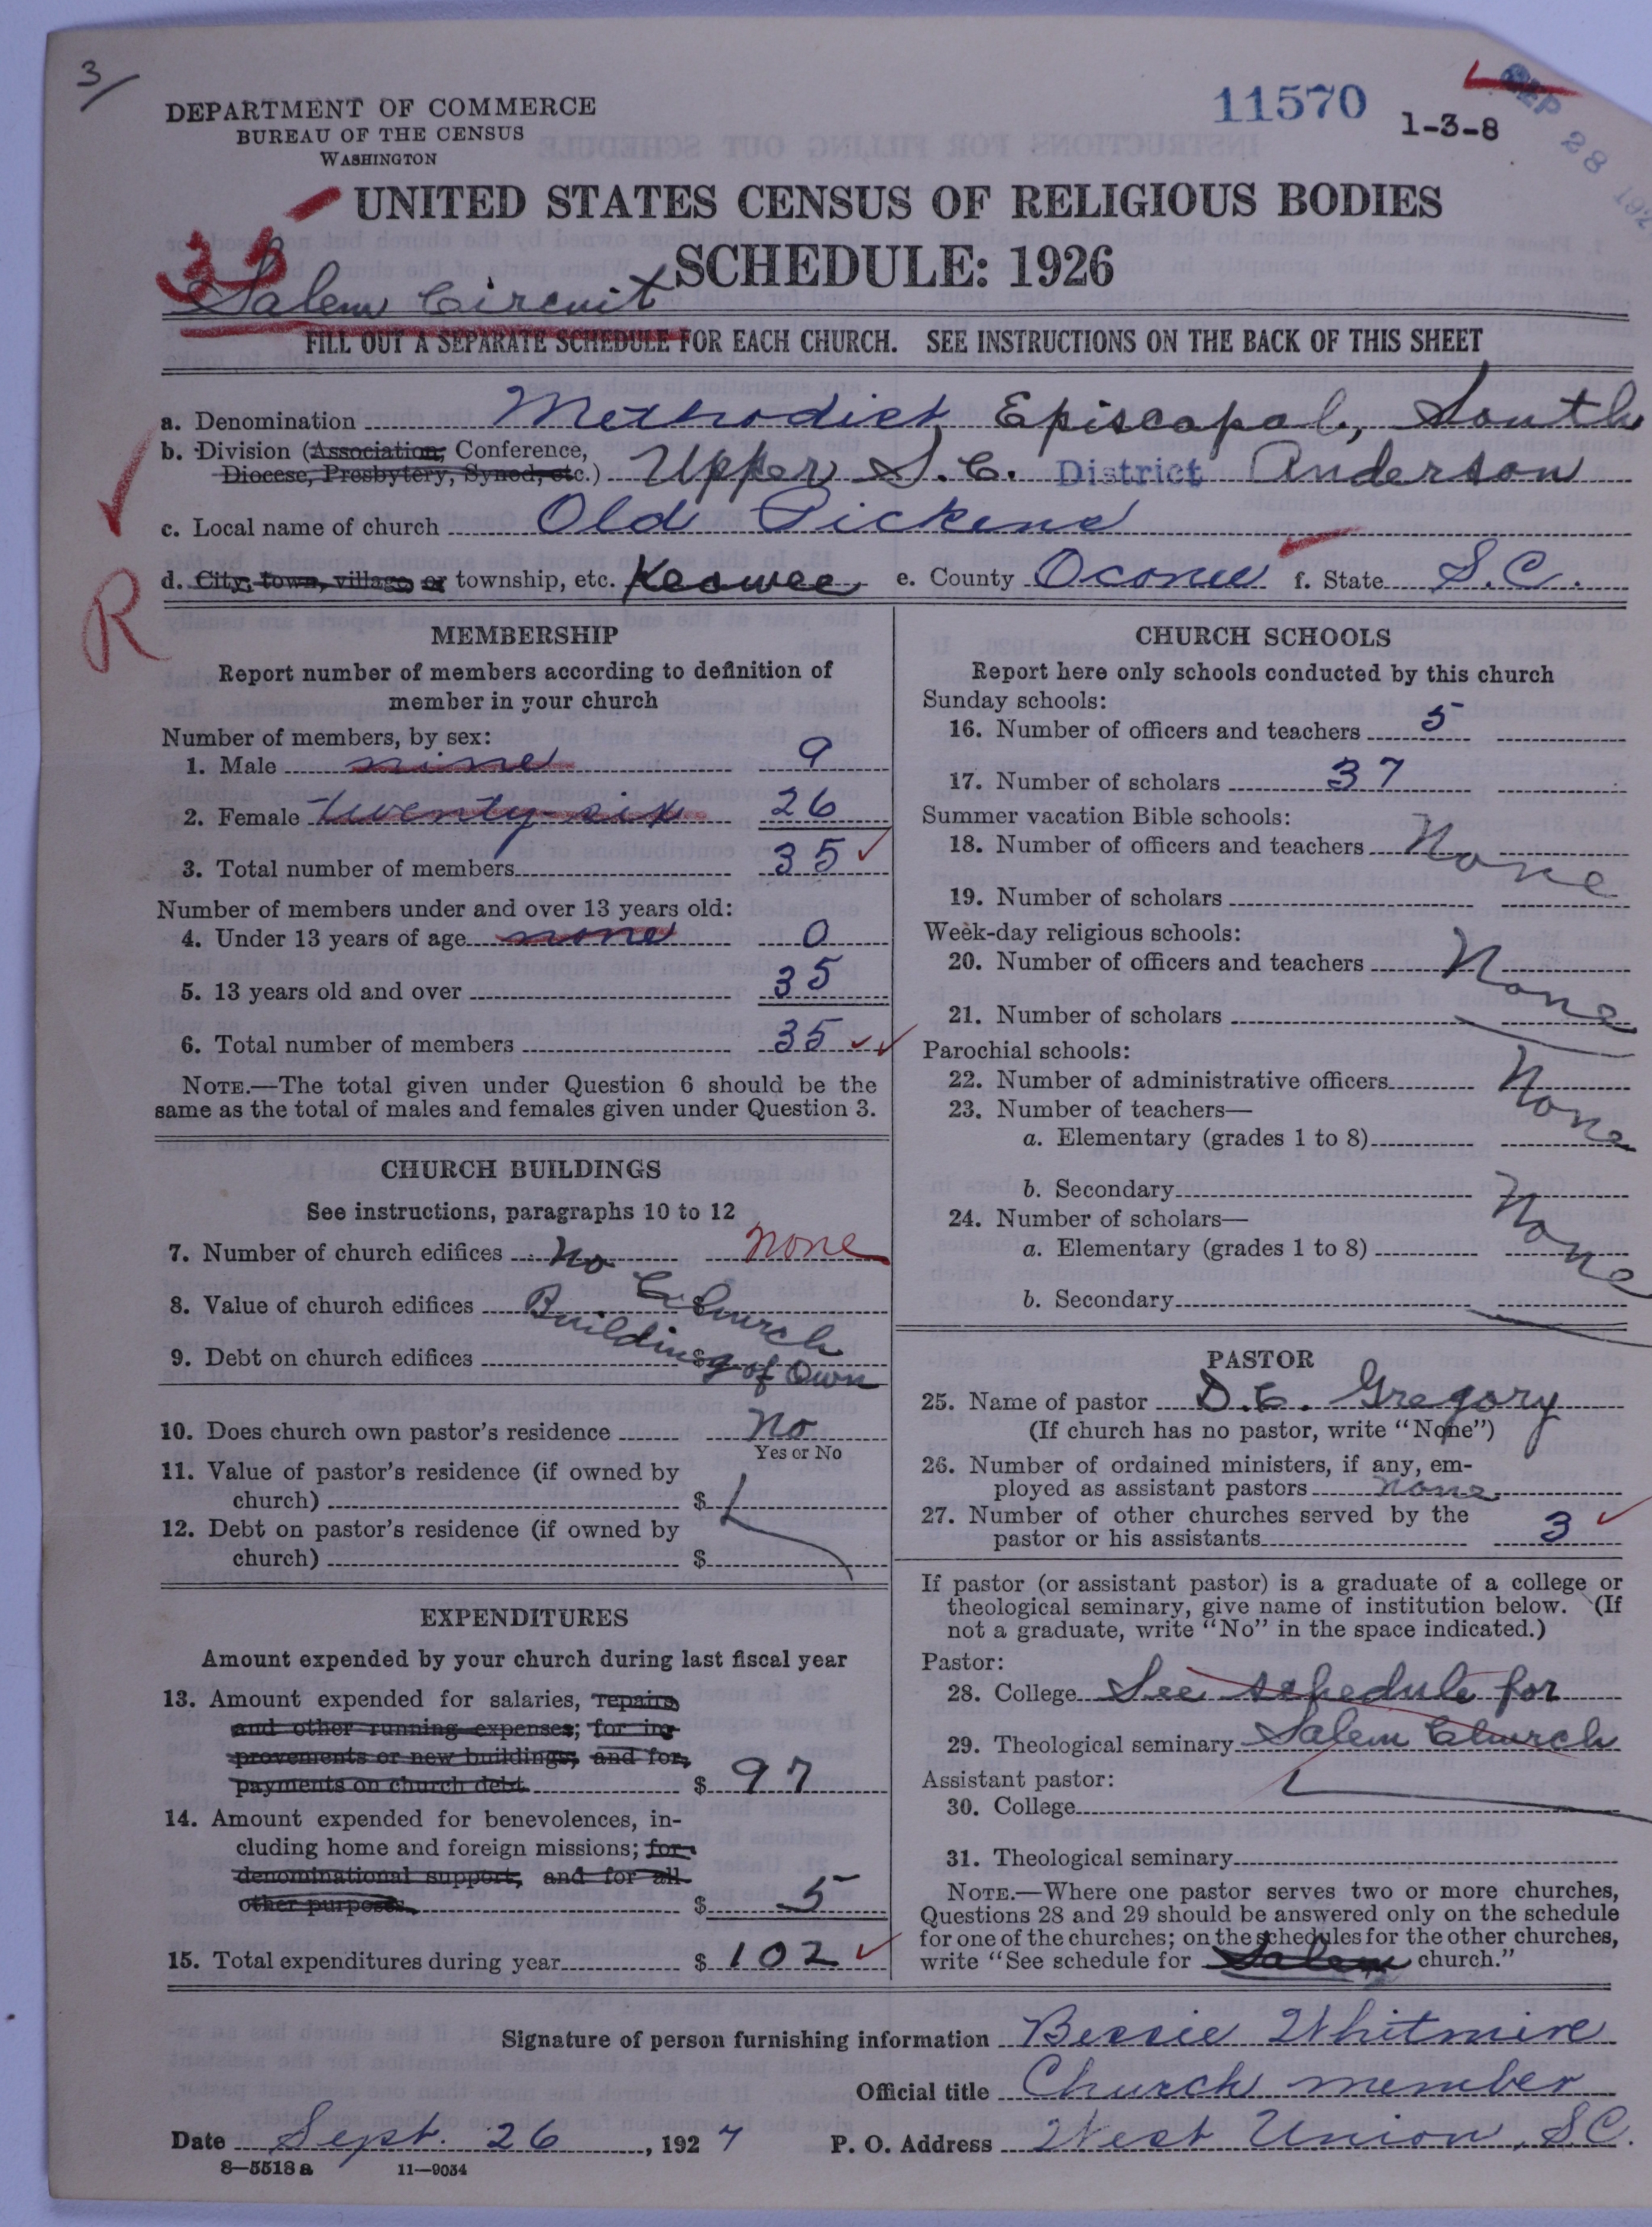 3/
DEPARTMENT OF COMMERCE
BUREAU OF THE CENSUS
WASHINGTON
11570
1-3-8
SEP 28 192
UNITED STATES CENSUS OF RELIGIOUS BODIES
33
SCHEDULE: 1926
Salem Circuit
FILL OUT A SEPARATE SCHEDULE FOR EACH CHURCH. SEE INSTRUCTIONS ON THE BACK OF THIS SHEET
a. Denomination Methodist Episcopal, South
b. Division (Association, Conference,
Diocese, Presbytery, Synod, etc.) Upper S.C. District Anderson
c. Local name of church Old Pickens
d. City, town, village or township, etc. Keowee e. County Oconee f. State S.C.
R
MEMBERSHIP
Report number of members according to definition of
member in your church
Number of members, by sex:
1. Male nine 9
2. Female twenty six 26
3. Total number of members 35
Number of members under and over 13 years old:
4. Under 13 years of age none 0
5. 13 years old and over 35
6. Total number of members 35
NOTE.—The total given under Question 6 should be the
same as the total of males and females given under Question 3.
CHURCH BUILDINGS
See instructions, paragraphs 10 to 12
7. Number of church edifices No none
8. Value of church edifices Church
9. Debt on church edifices $ Building of Own
10. Does church own pastor's residence No
Yes or No
11. Value of pastor's residence (if owned by
church) $
12. Debt on pastor's residence (if owned by
church) $
EXPENDITURES
Amount expended by your church during last fiscal year
13. Amount expended for salaries, repairs
and other running expenses; for im-
provements or new buildings; and for
payments on church debt. $ 97
14. Amount expended for benevolences, in-
cluding home and foreign missions; for
denominational support, and for all
other purposes. $ 5
15. Total expenditures during year $ 102
CHURCH SCHOOLS
Report here only schools conducted by this church
Sunday schools:
16. Number of officers and teachers 5
17. Number of scholars 37
Summer vacation Bible schools:
18. Number of officers and teachers None
19. Number of scholars
Week-day religious schools:
20. Number of officers and teachers None
21. Number of scholars
Parochial schools:
22. Number of administrative officers None
23. Number of teachers—
a. Elementary (grades 1 to 8)
b. Secondary None
24. Number of scholars—
a. Elementary (grades 1 to 8)
b. Secondary
PASTOR
25. Name of pastor D.C. Gregory
(If church has no pastor, write "None")
26. Number of ordained ministers, if any, em-
ployed as assistant pastors none
27. Number of other churches served by the
pastor or his assistants 3
If pastor (or assistant pastor) is a graduate of a college or
theological seminary, give name of institution below. (If
not a graduate, write "No" in the space indicated.)
Pastor:
28. College See schedule for
29. Theological seminary Salem Church
Assistant pastor:
30. College
31. Theological seminary
NOTE.—Where one pastor serves two or more churches,
Questions 28 and 29 should be answered only on the schedule
for one of the churches; on the schedules for the other churches,
write "See schedule for Salem church."
Signature of person furnishing information Bessie Whitmire
Official title Church member
Date Sept. 26, 1927 P. O. Address West Union, S.C.
8—5518 a 11—9034